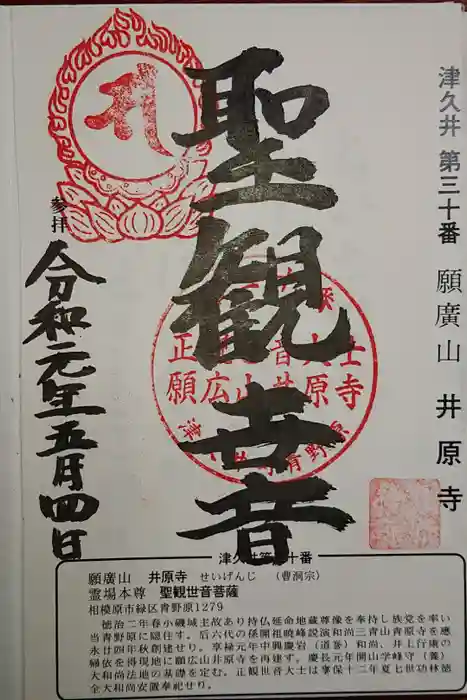 津久井 第三十番 願廣山 井原寺
聖観世音
参拝
令和元年五月四日
津久井第三十番
願廣山 井原寺 せいげんじ （曹洞宗）
霊場本尊 聖観世音菩薩
相模原市緑区青野原1279
徳治二年春小磯城主故あり持仏延命地蔵尊像を奉持し族党を率い
当青野原に隠住す。后六代の係開祖暁峰説演和尚三青山青原寺を應
永廿四年秋創建せり。享禄元年中興慶岩（道誉）和尚、井上行康の
帰依を得現地に願広山井原寺を再建す。慶長元年開山学峰守（養）
大和尚法地の基礎を定む。正観世音大士は享保十二年夏七世功林徳
全大和尚安置奉祀せり。